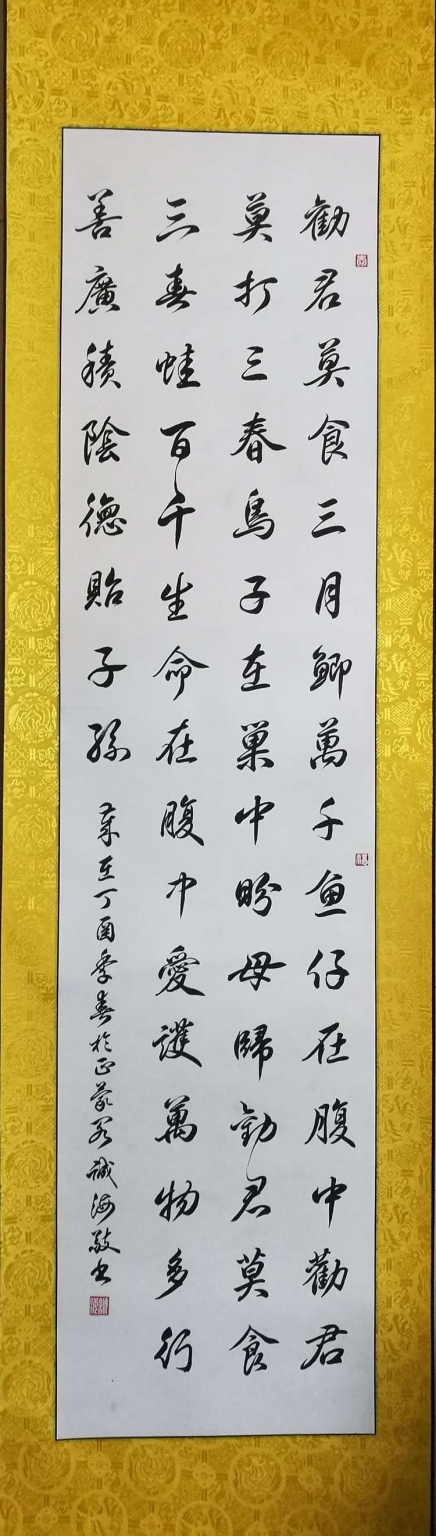 勸君莫食三月鯽萬千魚仔在腹中勸君
莫打三春鳥子在巢中盼母歸勸君莫食
三春蛙百千生命在腹中愛護萬物多行
善廣積陰德貽子孫
歲在丁酉季春於正蒙 誠海敬書